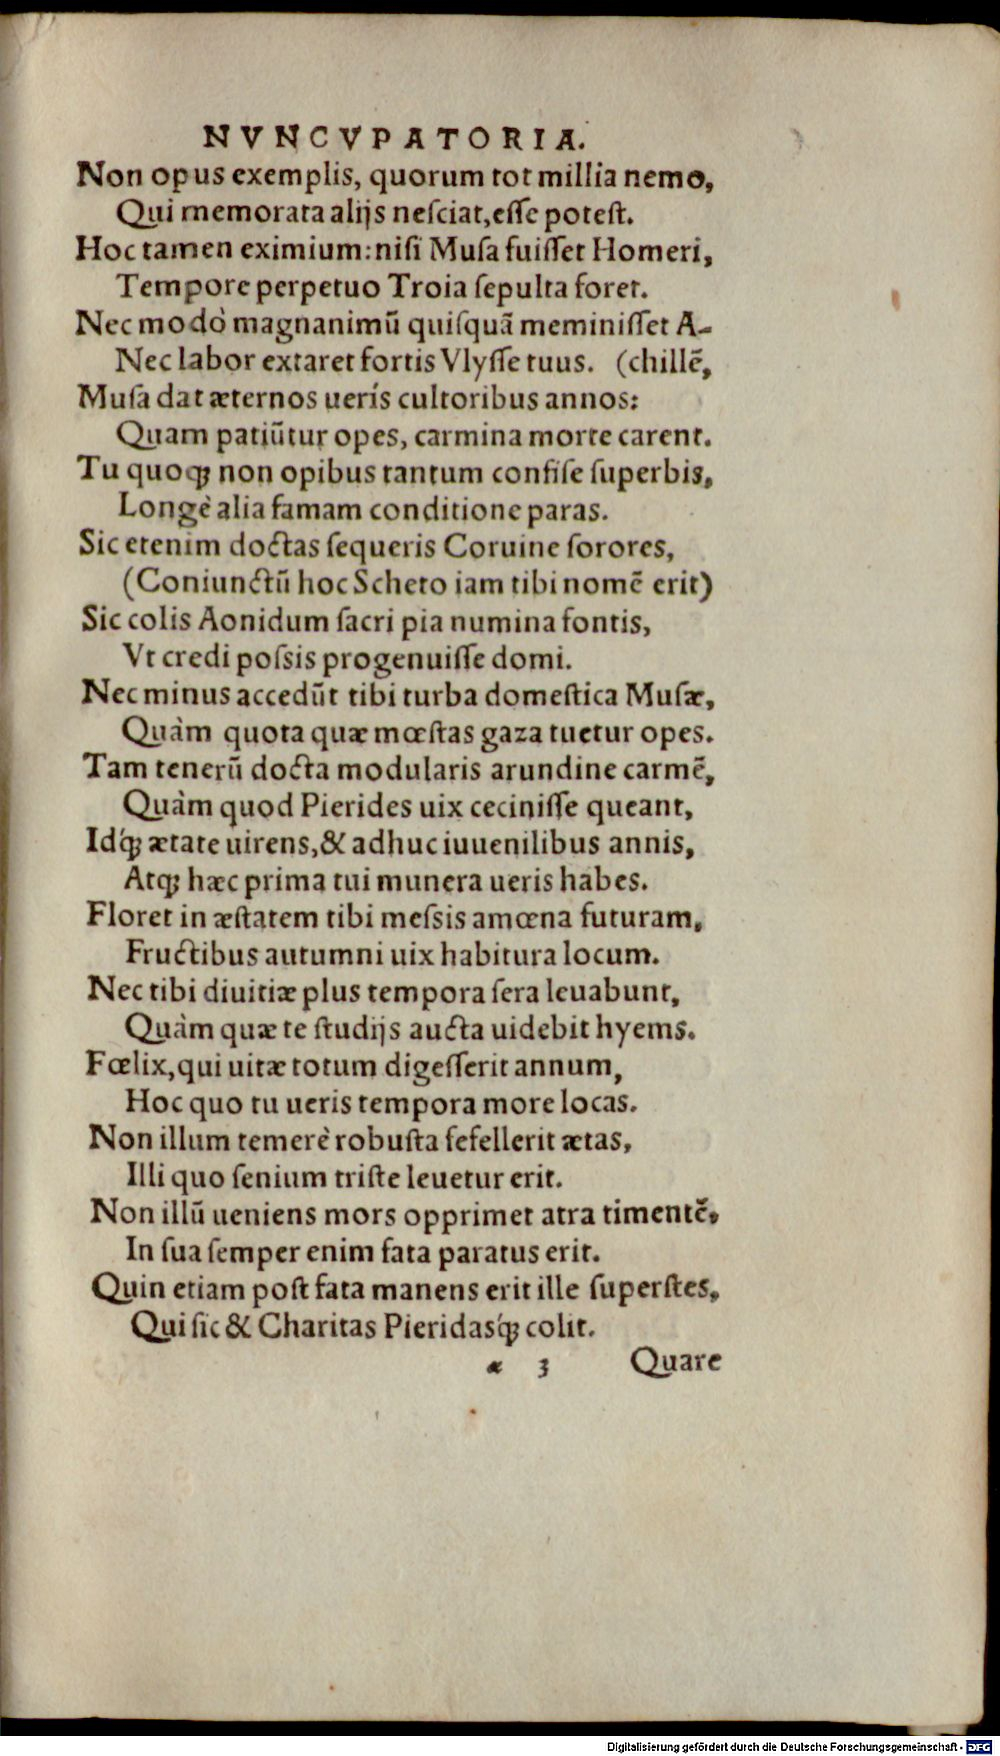 NVNCVPATORIA.
Non opus exemplis, quorum tot millia nemo,
Qui memorata alijs neſciat, eſſe poteſt.
Hoc tamen eximium: niſi Muſa fuiſſet Homeri,
Tempore perpetuo Troia ſepulta foret.
Nec modò magnanimũ quiſquã meminiſſet A-
Nec labor extaret fortis Vlyſſe tuus. (chillẽ,
Muſa dat æternos uerís cultoribus annos:
Quam patiũtur opes, carmina morte carent.
Tu quoq; non opibus tantum confiſe ſuperbis,
Longè alia famam conditione paras.
Sic etenim doctas ſequeris Coruine ſorores,
(Coniunctũ hoc Scheto iam tibi nomẽ erit)
Sic colis Aonidum ſacri pia numina fontis,
Vt credi poſsis progenuiſſe domi.
Nec minus accedũt tibi turba domeſtica Muſæ,
Quàm quota quæ mœſtas gaza tuetur opes.
Tam tenerũ docta modularis arundine carmẽ,
Quàm quod Pierides uix ceciniſſe queant,
Idq́; ætate uirens, & adhuc iuuenilibus annis,
Atq; hæc prima tui munera ueris habes.
Floret in æſtatem tibi meſsis amœna futuram,
Fructibus autumni uix habitura locum.
Nec tibi diuitiæ plus tempora ſera leuabunt,
Quàm quæ te ſtudijs aucta uidebit hyems.
Fœlix, qui uitæ totum digeſſerit annum,
Hoc quo tu ueris tempora more locas.
Non illum temerè robuſta fefellerit ætas,
Illi quo ſenium triſte leuetur erit.
Non illũ ueniens mors opprimet atra timentẽ,
In ſua ſemper enim fata paratus erit.
Quin etiam poſt fata manens erit ille ſuperſtes,
Qui ſic & Charitas Pieridasq́; colit.
a 3 Quare
Digitalisierung gefördert durch die Deutsche Forschungsgemeinschaft - DFG